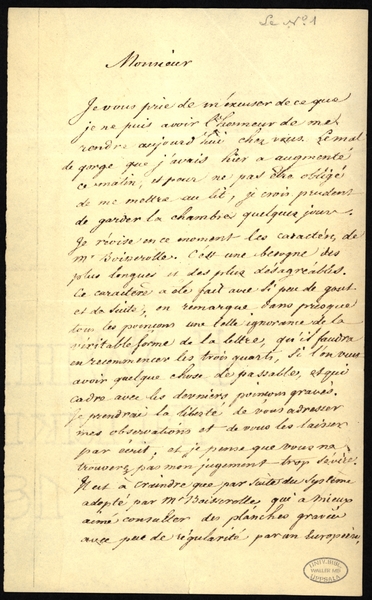 Se No 1
Monsieur
Je vous prie de m'excuser de ce que
je ne puis avoir l'honneur de me
rendre aujourd'hui chez vous. Le mal
de gorge que j'avais hier a augmenté
ce matin, et pour ne pas être obligé
de me mettre au lit, je crois prudent
de garder la chambre quelques jours.
Je révise en ce moment les caractères de
Mr Boisserolle. C'est une besogne des
plus longues et des plus désagréables.
Ce caractère a été fait avec si peu de gout
et de suite, on remarque dans presque
tous les poinçons une telle ignorance de la
véritable forme de la lettre, qu'il faudra
en recommencer les trois quarts, si l'on veut
avoir quelque chose de passable, et qui
cadre avec les derniers poinçons gravés.
Je prendrai la liberté de vous adresser
mes observations et de vous les laisser
par écrit, et je pense que vous ne
trouverez pas mon jugement trop sévère.
Il est à craindre que par suite du système
adopté par Mr Boisserolle, qui a mieux
aimé consulter des planches gravées
avec peu de régularité par un Européen,
UNIV. BIBL.
UPPSALA